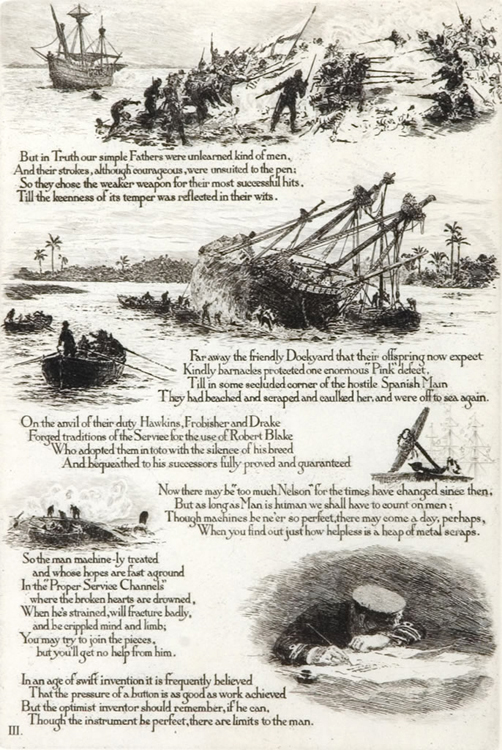 But in Truth our simple Fathers were unlearned kind of men,
And their strokes, although courageous, were unsuited to the pen;
So they chose the weaker weapon for their most successful hits.
Till the keenness of its temper was reflected in their wits.
Far away the friendly Dockyard that their offspring now expect
Kindly barnacles protected one enormous "Pink" defect,
Till in some secluded corner of the hostile Spanish Main
They had beached and scraped and caulked her, and were off to sea again.
On the anvil of their duty Hawkins, Frobisher and Drake
Forged traditions of the Service for the use of Robert Blake
Who adopted them in toto with the silence of his breed
And bequeathed to his successors fully proved and guaranteed
Now there may be "too much Nelson" for the times have changed since then,
But as long as Man is human we shall have to count on men;
Though machines be ne'er so perfect, there may come a day, perhaps,
When you find out just how helpless is a heap of metal scraps.
So the man machine-ly treated
and whose hopes are fast aground
In the "Proper Service Channels"
where the broken hearts are drowned,
When he's strained, will fracture badly,
and be crippled mind and limb;
You may try to join the pieces,
but you'll get no help from him.
In an age of swift invention it is frequently believed
That the pressure of a button is as good as work achieved
But the optimist inventor should remember, if he can,
Though the instrument be perfect, there are limits to the man.
III.